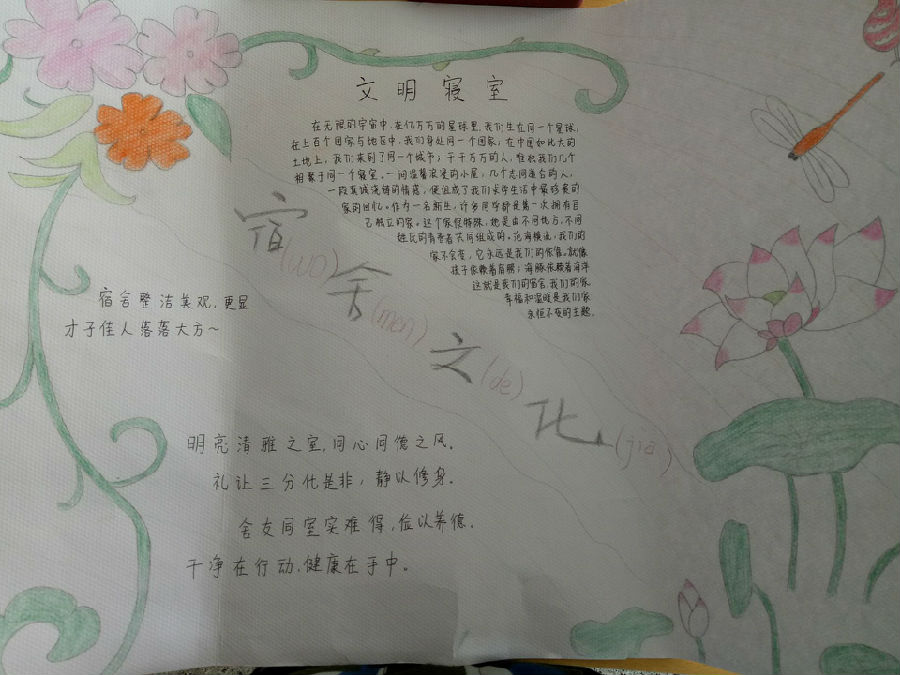 文明寝室
在无限的宇宙中，在亿万万的星球里，我们生在同一个星球，
在上百个国家与地区中，我们身处同一个国家，在中国如此大的
土地上，我们来到了同一个城市；于千千万万的人，惟独我们几个
相聚于同一个寝室。一间温馨浪漫的小屋，几个志同道合的人，
一段真诚浅铸的情感，便组成了我们求学生活中最珍贵的
家的回忆。作为一名新生，许多同学都是第一次拥有自
己独立的家。这个家很特殊，她是由不同地方，不同
姓氏的青春者共同组成的。沧海横流，我们的
家不会变，它永远是我们的依靠。就像
孩子依赖着肩膀；海豚依赖着海洋
这就是我们的宿舍，我们的家
幸福和温暖是我们家
永恒不变的主题。
宿(wo)
舍(men)
文(de)
化(jia)
宿舍整洁美观，更显
才子佳人落落大方～
明亮清雅之室，同心同德之风。
礼让三分化是非，静以修身。
舍友同室实难得，俭以养德。
干净在行动，健康在手中。